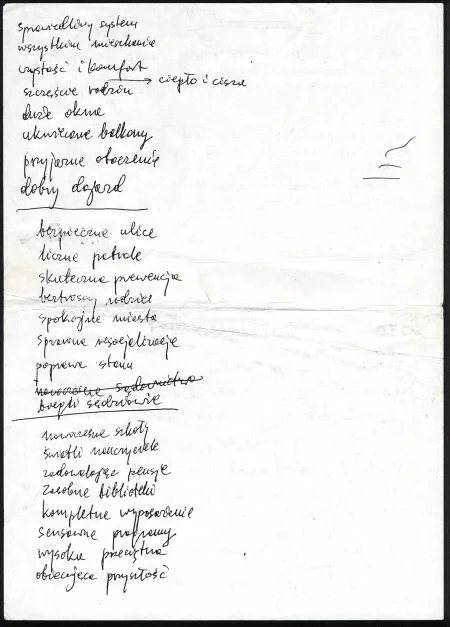 sprawiedliwy system
wszystkim mieszkanie
czystość i komfort
→ ciepło i cisza
szczęście rodzin
duże okna
ukwiecone balkony
przyjazne otoczenie
dobry dojazd
bezpieczne ulice
liczne patrole
skuteczna prewencja
beztroscy rodzice
spokojne miasta
sprawna resocjalizacja
poprawa stanu
nowoczesne sądownictwo
biegli sędziowie
nowoczesne szkoły
światli nauczyciele
zadowalające pensje
zasobne biblioteki
kompletne wyposażenie
sensowne programy
wysoka przeciętna
obiecująca przyszłość